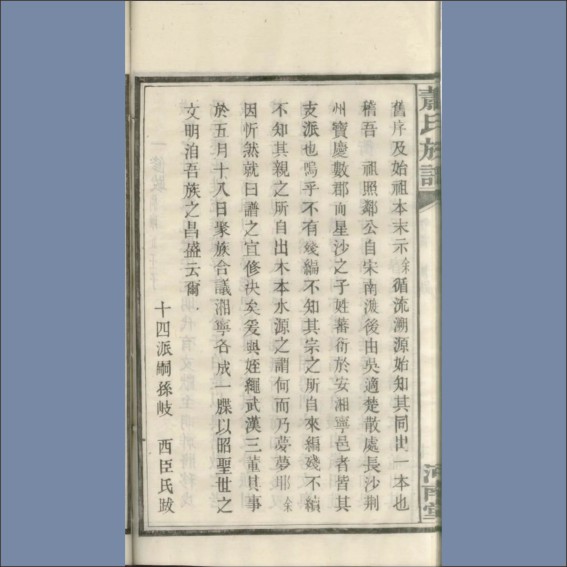 蕭氏族譜
舊序及始祖本末示余循流溯源始知其同出一本也
稽吾 祖照鄰公自宋南渡後由吳適楚散處長沙荊
州寶慶數郡而星沙之子姓蕃衍於安湘寧邑者皆其
支派也嗚乎不有幾編不知其宗之所自來編殘不續
不知其親之所自出木本水源之謂何而乃夢夢耶余
因忻然就曰譜之宜修決矣爰與姪繩武漢三董其事
於五月十八日聚族合議湘寧各成一牒以昭聖世之
文明洎吾族之昌盛云爾
十四派嗣孫岐 西臣氏跋